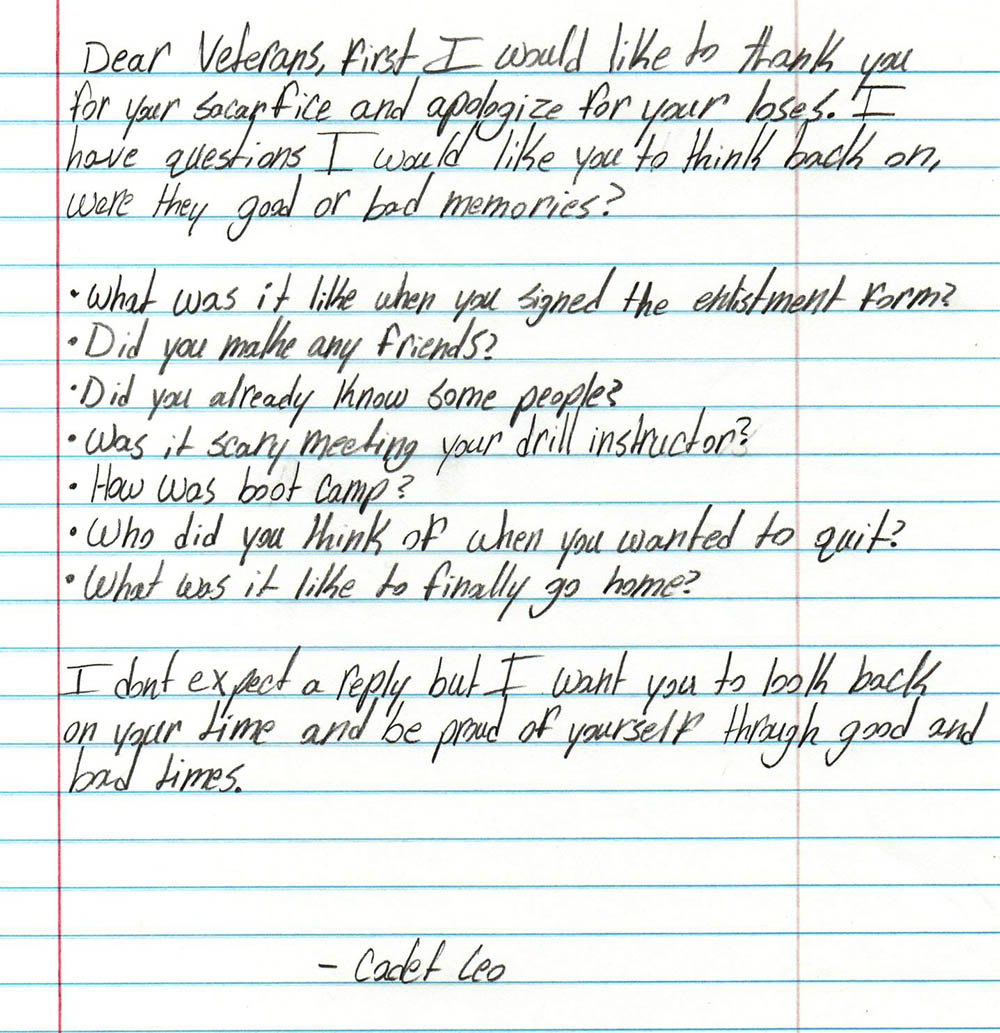 Dear Veterans, First I would like to thank you
for your sacarfice and apologize for your loses. I
have questions I would like you to think back on,
were they good or bad memories?
• What was it like when you signed the enlistment form?
• Did you make any friends?
• Did you already know some people?
• Was it scary meeting your drill instructor?
• How was boot camp?
• Who did you think of when you wanted to quit?
• What was it like to finally go home?
I dont expect a reply but I want you to look back
on your time and be proud of yourself through good and
bad times.
- Cadet Leo